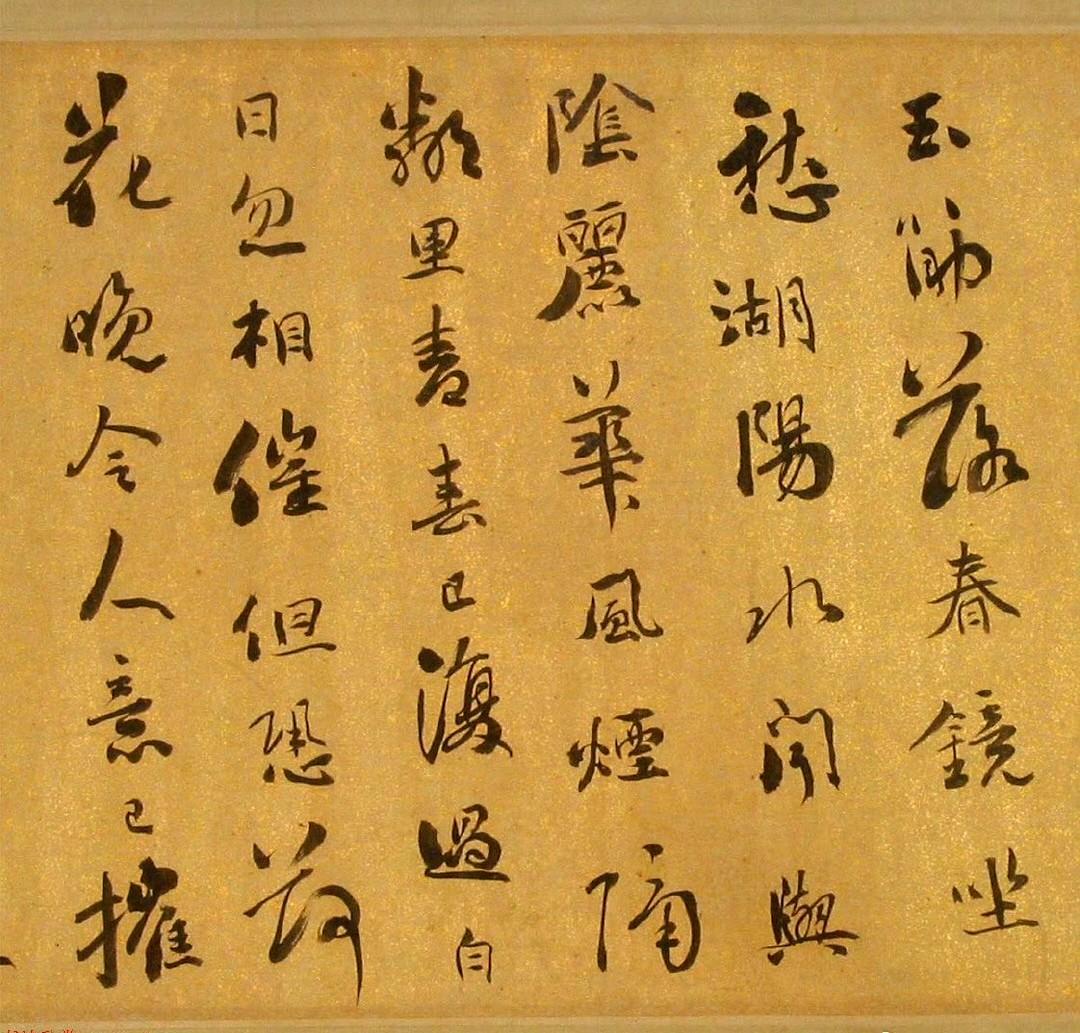 玉筯落春鏡坐
愁湖陽水聞與
陰麗華風煙隔
鄰里青春已復過白
日忽相催但恐荷
花晚令人意已摧